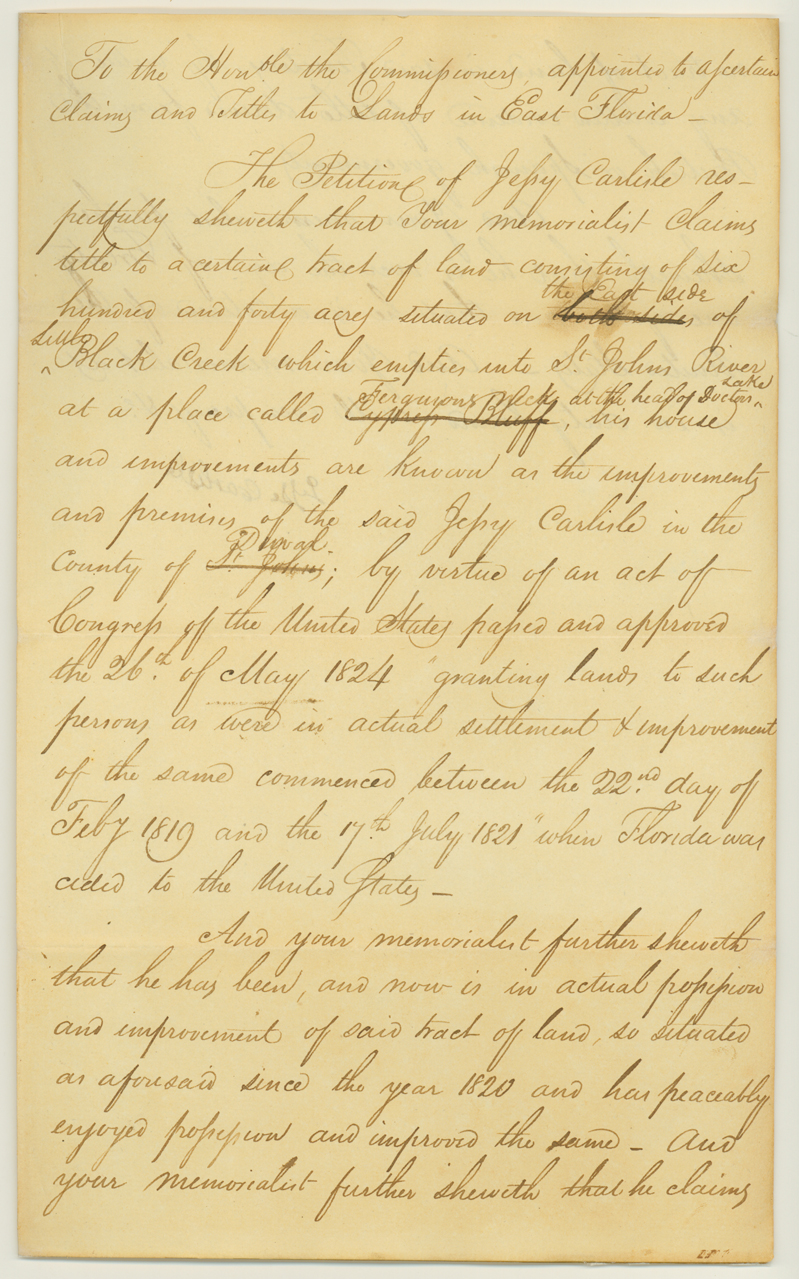 To the Honble the Commissioners, appointed to ascertain
Claims and Titles to Lands in East Florida —
The Petition of Jessy Carlisle res-
pectfully sheweth that Your memorialist Claims
title to a certain tract of land consisting of six
the East side
hundred and forty acres situated on both sides of
Little
Black Creek which empties into St. Johns River
Lake
Fergusons at the head of Doctors
at a place called Cypress Bluff, his house
and improvements are known as the improvements
and premises of the said Jessy Carlisle in the
Duval
County of St. Johns; by virtue of an act of
Congress of the United States passed and approved
the 26th of May 1824 "granting lands to such
persons as were in actual settlement & improvement
of the same commenced between the 22nd day of
Feby 1819 and the 17th July 1821" when Florida was
ceded to the United States —
And your memorialist further sheweth
that he has been, and now is in actual possession
and improvement of said tract of land, so situated
as aforesaid since the year 1820 and has peaceably
enjoyed possession and improved the same — And
your memorialist further sheweth that he claims